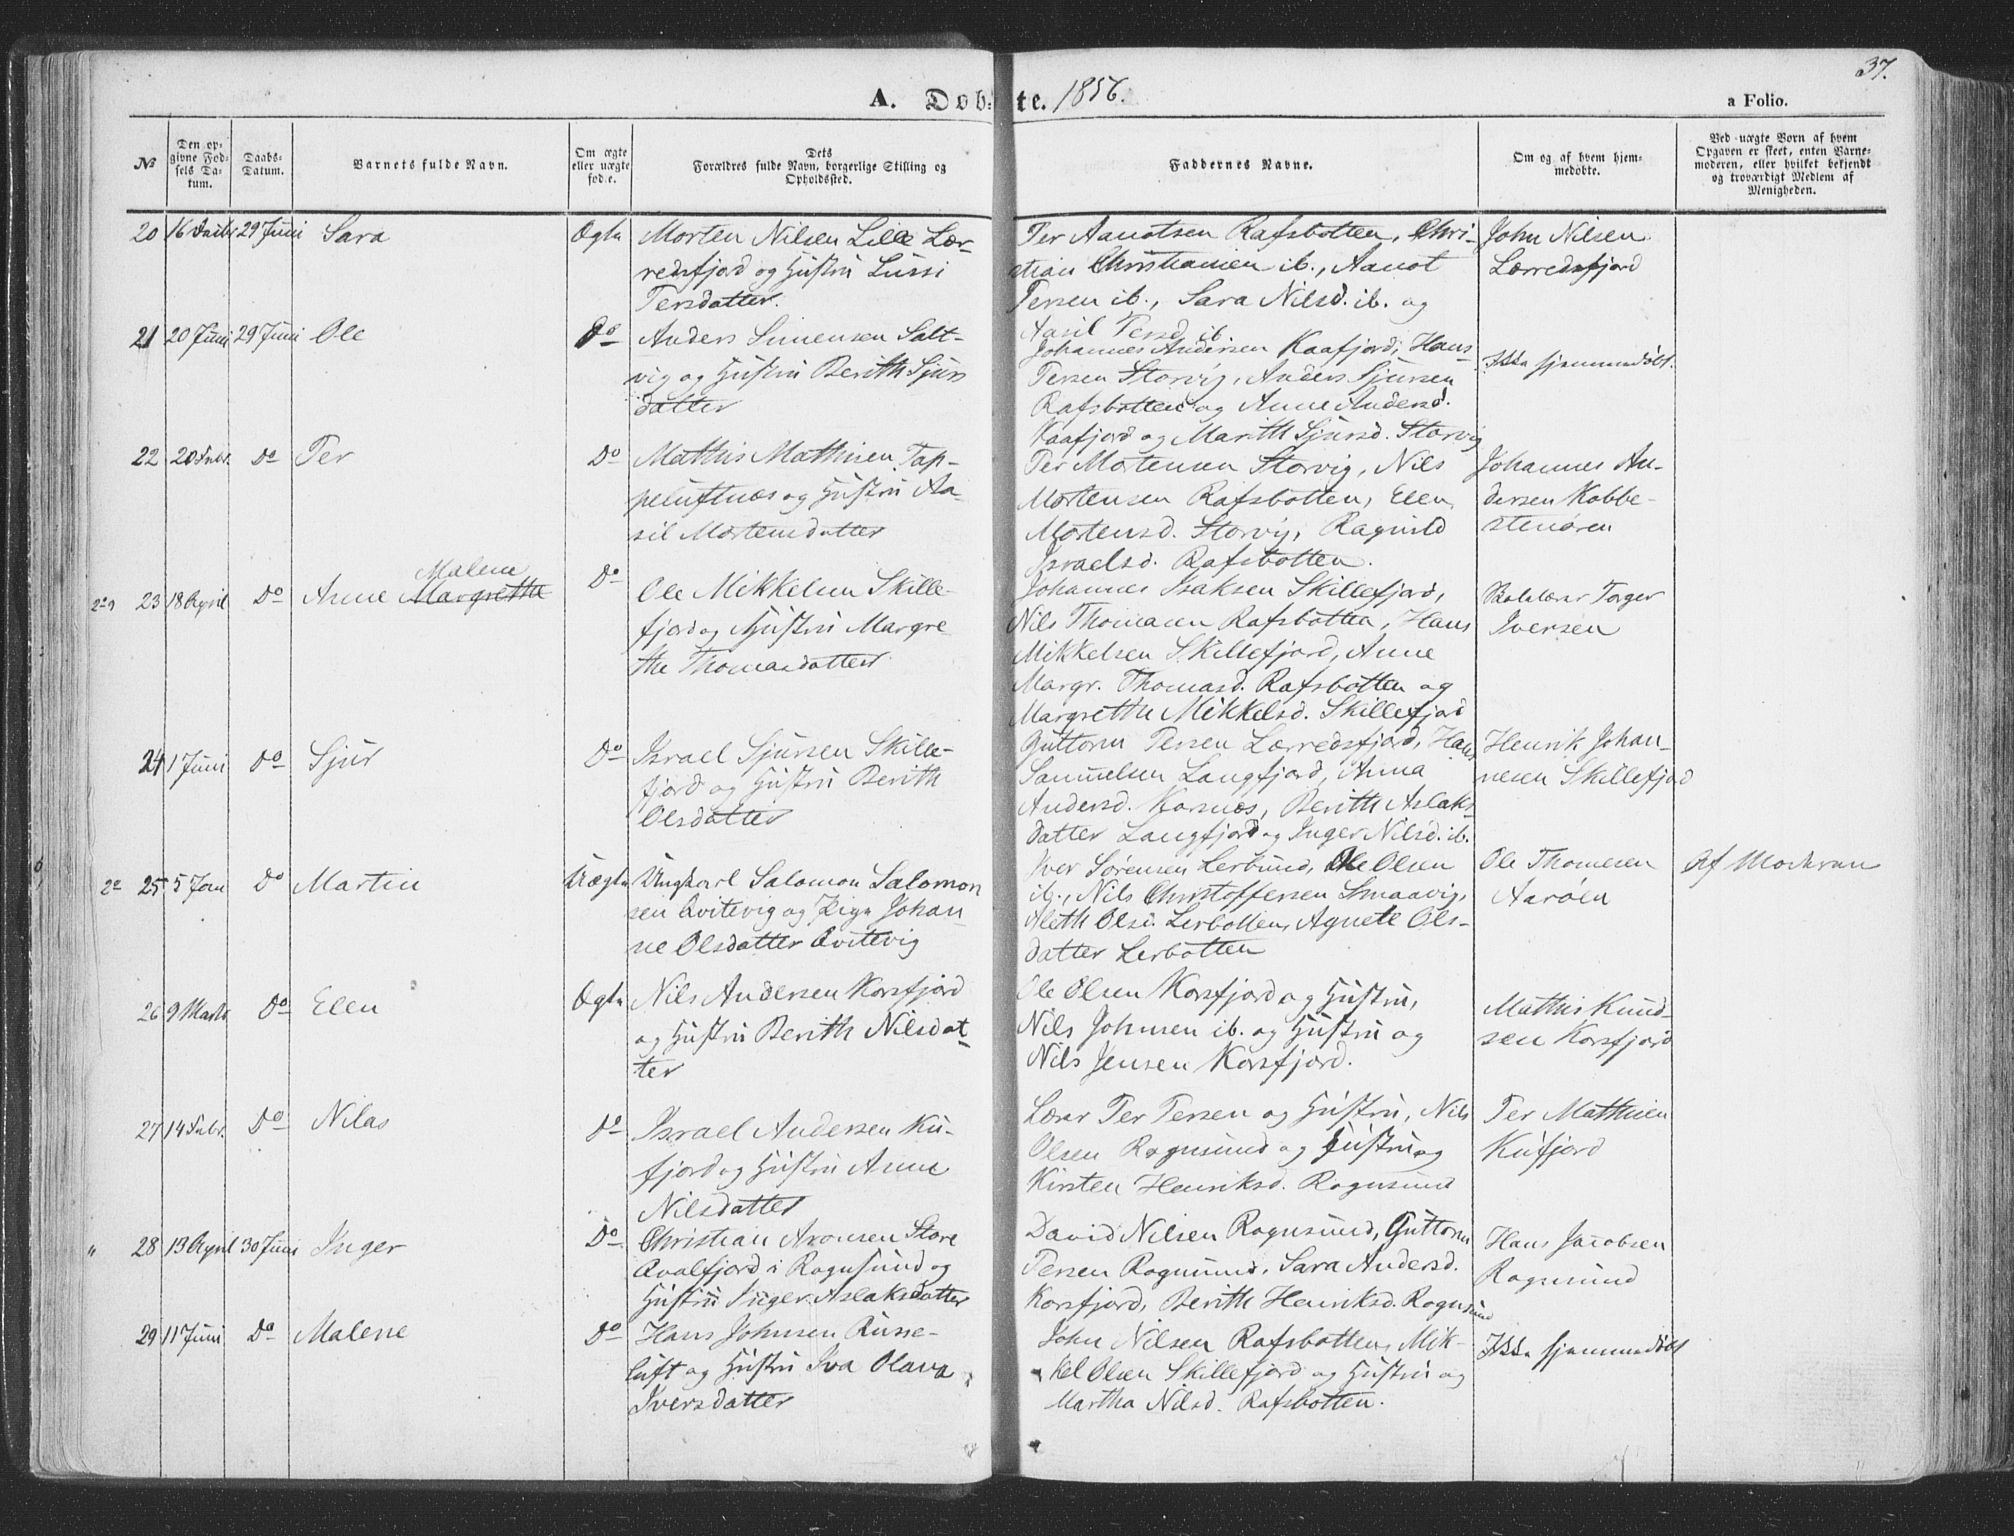 37.
A. Döbte. 1856.
a Folio.
No
Den opgivne Fodsels Datum.
Daabs-Datum.
Barnets fulde Navn.
Om ægte eller uægte fode.
Dets Forældres fulde Navn, borgerlige Stilling og Opholdssted.
Faddernes Navne.
Om og af hvem hjemmedobte.
Ved uægte Born af hvem Opgaven er skeet, enten Barnemoderen, eller hvilket bekjendt og troværdigt Medlem af Menigheden.
20 29 Juni Sara Ægte
Morten Nilsen Lille Lær-
redsfjord og Hustru Lussi
Persdatter
Per Aanotsen Rafsbotten, Chri-
stian Christiansen ib., Aanot
Persen ib., Sara Nilsd. ib. og
Aasil Persd. ib.
John Nilsen
Lærredsfjord
21 20 Juni 29 Juni Ole Do
Anders Simensen Salt-
vig og Hustru Berith Sjurs
datter
Johannes Andersen Kaafjord, Hans
Persen Storvig, Anders Sjursen
Rafsbotten og Anne Andersd.
Kaafjord og Marith Sjursd. Storvig
Ikke hjemmedöbt.
22 20 Febr. Do Per Do
Mathis Mathisen Tap-
peluftnæs og Hustru Aa-
sil Mortensdatter
Per Mortensen Storvig, Nils
Mortensen Rafsbotten, Elen
Mortensd. Storvig, Ragnild
Israelsd. Rafsbotten.
Johannes An-
dersen Kobbe-
stenören
23 18 April Do Anne Margrethe Malene Do
Ole Mikkelsen Skille-
fjord og Hustru Margre
the Thomasdatter
Johannes Isaksen Skillefjord,
Nils Thomasen Rafsbotten, Hans
Mikkelsen Skillefjord, Anne
Margr. Thomasd. Rafsbotten og
Margrethe Mikkelsd. Skillefjord
Torger
Iversen
24 1 Juni Do Sjur Do
Israel Sjursen Skille-
fjord og Hustru Berith
Olsdatter
Guttorm Persen Lærredsfjord, Hans
Samuelsen Langfjord, Anna
Andersd. Korsnæs, Berith Aslaks
datter Langfjord og Inger Nilsd. ib.
Henrik Johan-
nesen Skillefjord
25 5 Do Martin Uægte
Ungkarl Salomon Salomon
sen Qvitevig og Pige Johan
ne Olsdatter Qvitevig
Iver Sörensen Lerbund, Ole Olsen
ib., Nils Christoffersen Smaavig,
Aleth Lerbotten, Agnete Ols-
datter Lerbotten
Ole Thomesen
Aaröen
Af Moderen
26 9 Marts Do Elen Ægte
Nils Andersen Korsfjord
og Hustru Berith Nilsdat
ter
Ole Olsen Korsfjord og Hustru,
Nils Johnsen ib. og Hustru og
Nils Jensen Korsfjord.
Mathis Knud-
sen Korsfjord
27 14 Febr. Do Nilas Do
Israel Andersen Ku-
fjord og Hustru Anne
Nilsdatter
Lærer Per Persen og Hustru, Nils
Olsen Rognsund og Hustru og
Kirsten Henriksd. Rognsund
Per Mathisen
Kufjord
28 13 April 30 Juni Inger Do
Christian Aronsen Store
Qvalfjord i Rognsund og
Hustru Inger Aslaksdatter
David Nilsen Rognsund, Guttorm
Persen Rognsund, Sara Andersd.
Korsfjord, Berith Henriksd. Rognsund
Hans Jacobsen
Rognsund
29 11 Juni Do Malene Do
Hans Johnsen Russe-
luft og Hustru Iva Olava
Iversdatter
John Nilsen Rafsbotten, Mik-
kel Olsen Skillefjord og Hustru og
Martha Nilsd. Rafsbotten.
Ikke hjemmedöbt